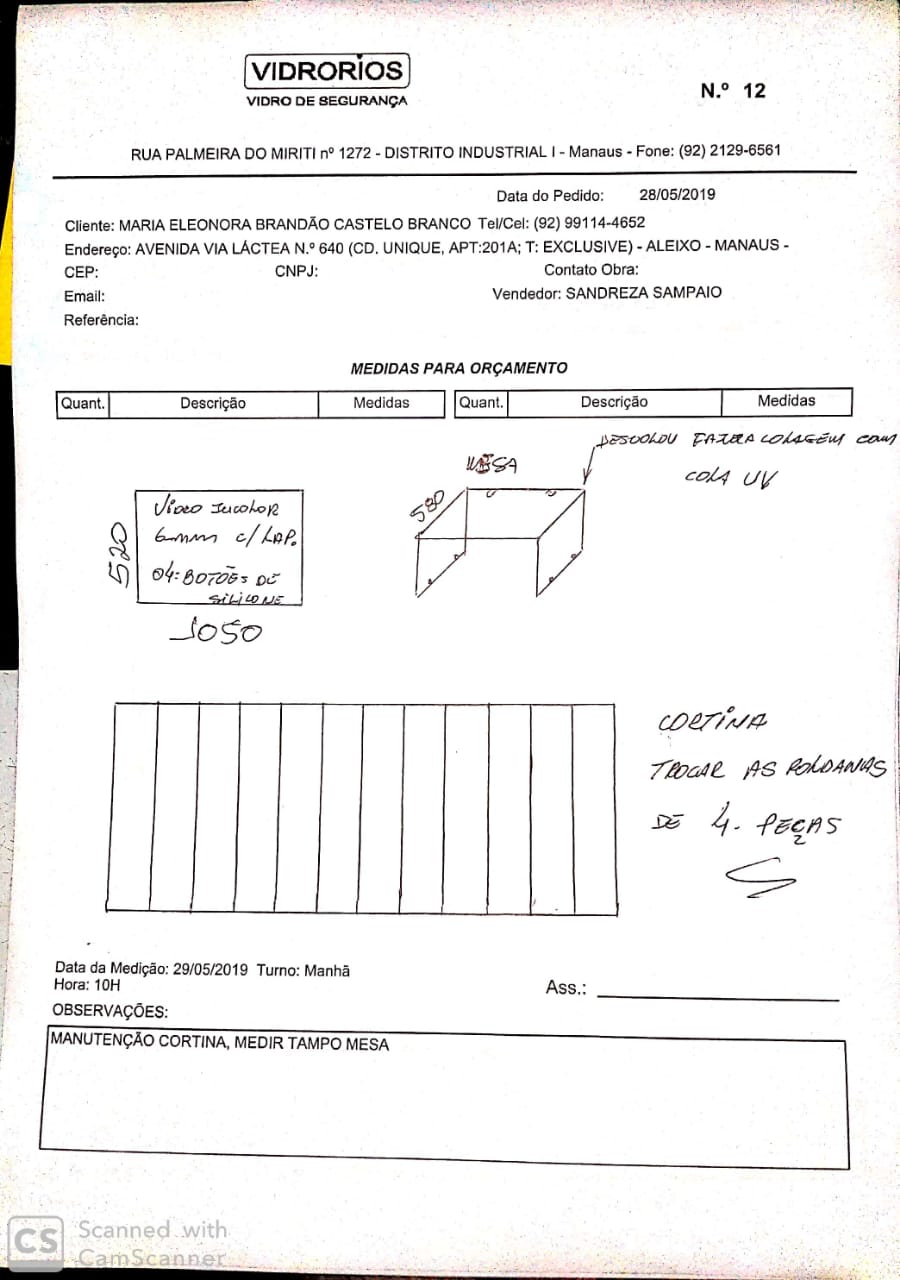 VIDRORIOS
VIDRO DE SEGURANÇA
N.º 12
RUA PALMEIRA DO MIRITI nº 1272 - DISTRITO INDUSTRIAL I - Manaus - Fone: (92) 2129-6561
Data do Pedido: 28/05/2019
Cliente: MARIA ELEONORA BRANDÃO CASTELO BRANCO Tel/Cel: (92) 99114-4652
Endereço: AVENIDA VIA LÁCTEA N.º 640 (CD. UNIQUE, APT:201A; T: EXCLUSIVE) - ALEIXO - MANAUS -
CEP: CNPJ: Contato Obra:
Email: Vendedor: SANDREZA SAMPAIO
Referência:
MEDIDAS PARA ORÇAMENTO
Quant. Descrição Medidas Quant. Descrição Medidas
DESCOLOU FAZER COLAGEM COM
COLA UV
MESA
580
VIDRO INCOLOR
6mm c/ LAP.
04: BOTÕES DE
SILICONE
520
1050
CORTINA
TROCAR AS ROLDANAS
DE 4. PEÇAS
Data da Medição: 29/05/2019 Turno: Manhã
Hora: 10H
Ass.:
OBSERVAÇÕES:
MANUTENÇÃO CORTINA, MEDIR TAMPO MESA
CS Scanned with
CamScanner